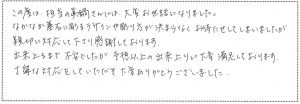 この度は、担当の髙嶋さんには、大変お世話になりました。
なかなか墓石に彫るデザインや彫り方が決まりなく お待たせしてしまいましたが
親切に対応して下さり感謝しております。
出来上るまで 不安でしたが 予想以上の出来上りに大変満足しております。
丁寧な対応をしていただき 大変ありがとうございました。